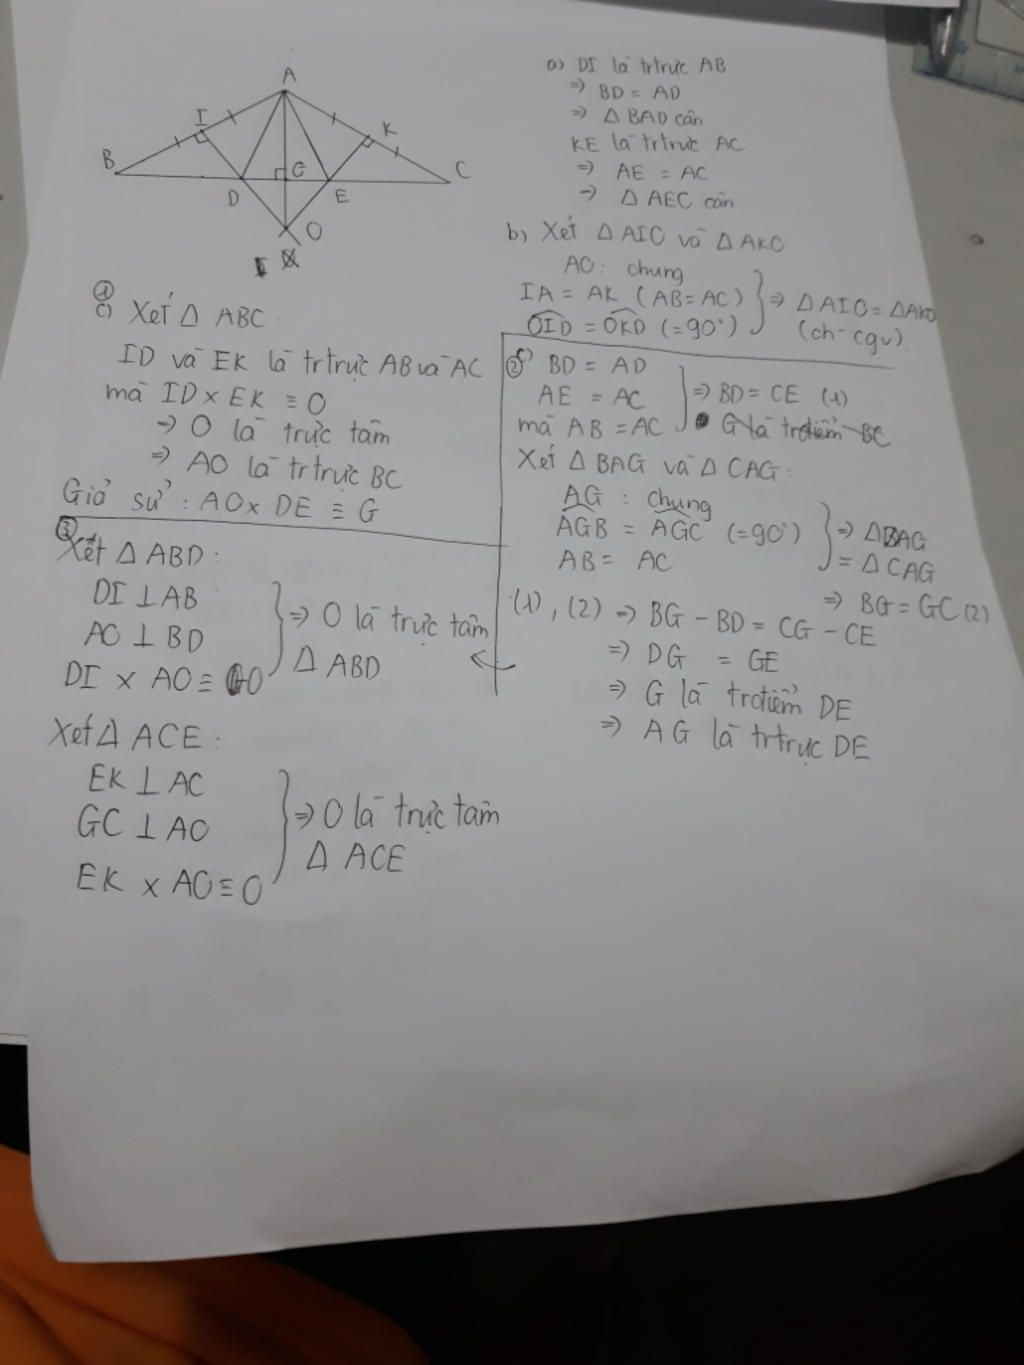 A
I
K
B
G
C
D
E
O
a) DI là trtrực AB
⇒ BD = AD
⇒ Δ BAD cân
KE là trtrực AC
⇒ AE = AC
⇒ Δ AEC cân
b) Xét Δ AIO và Δ AKO
AO: chung
IA = AK (AB = AC)
OID = OKD (=90°)
⇒ Δ AIO = Δ AKO
(ch-cgv)
①
c) Xét Δ ABC
ID và EK là trtrực AB và AC
mà ID x EK ≡ O
⇒ O là trực tâm
⇒ AO là trtrực BC
Giả sử: AO x DE ≡ G
② c) BD = AD
AE = AC
mà AB = AC
⇒ BD = CE (1)
G là trđiểm BC
Xét Δ BAG và Δ CAG:
AG : chung
AGB = AGC (=90°)
AB = AC
⇒ Δ BAG
= Δ CAG
⇒ BG = GC (2)
(1), (2) ⇒ BG - BD = CG - CE
⇒ DG = GE
⇒ G là trđiểm DE
⇒ AG là trtrực DE
③
Xét Δ ABD:
DI ⊥ AB
AO ⊥ BD
DI x AO ≡ O
⇒ O là trực tâm
Δ ABD
Xét Δ ACE:
EK ⊥ AC
GC ⊥ AO
EK x AO ≡ O
⇒ O là trực tâm
Δ ACE